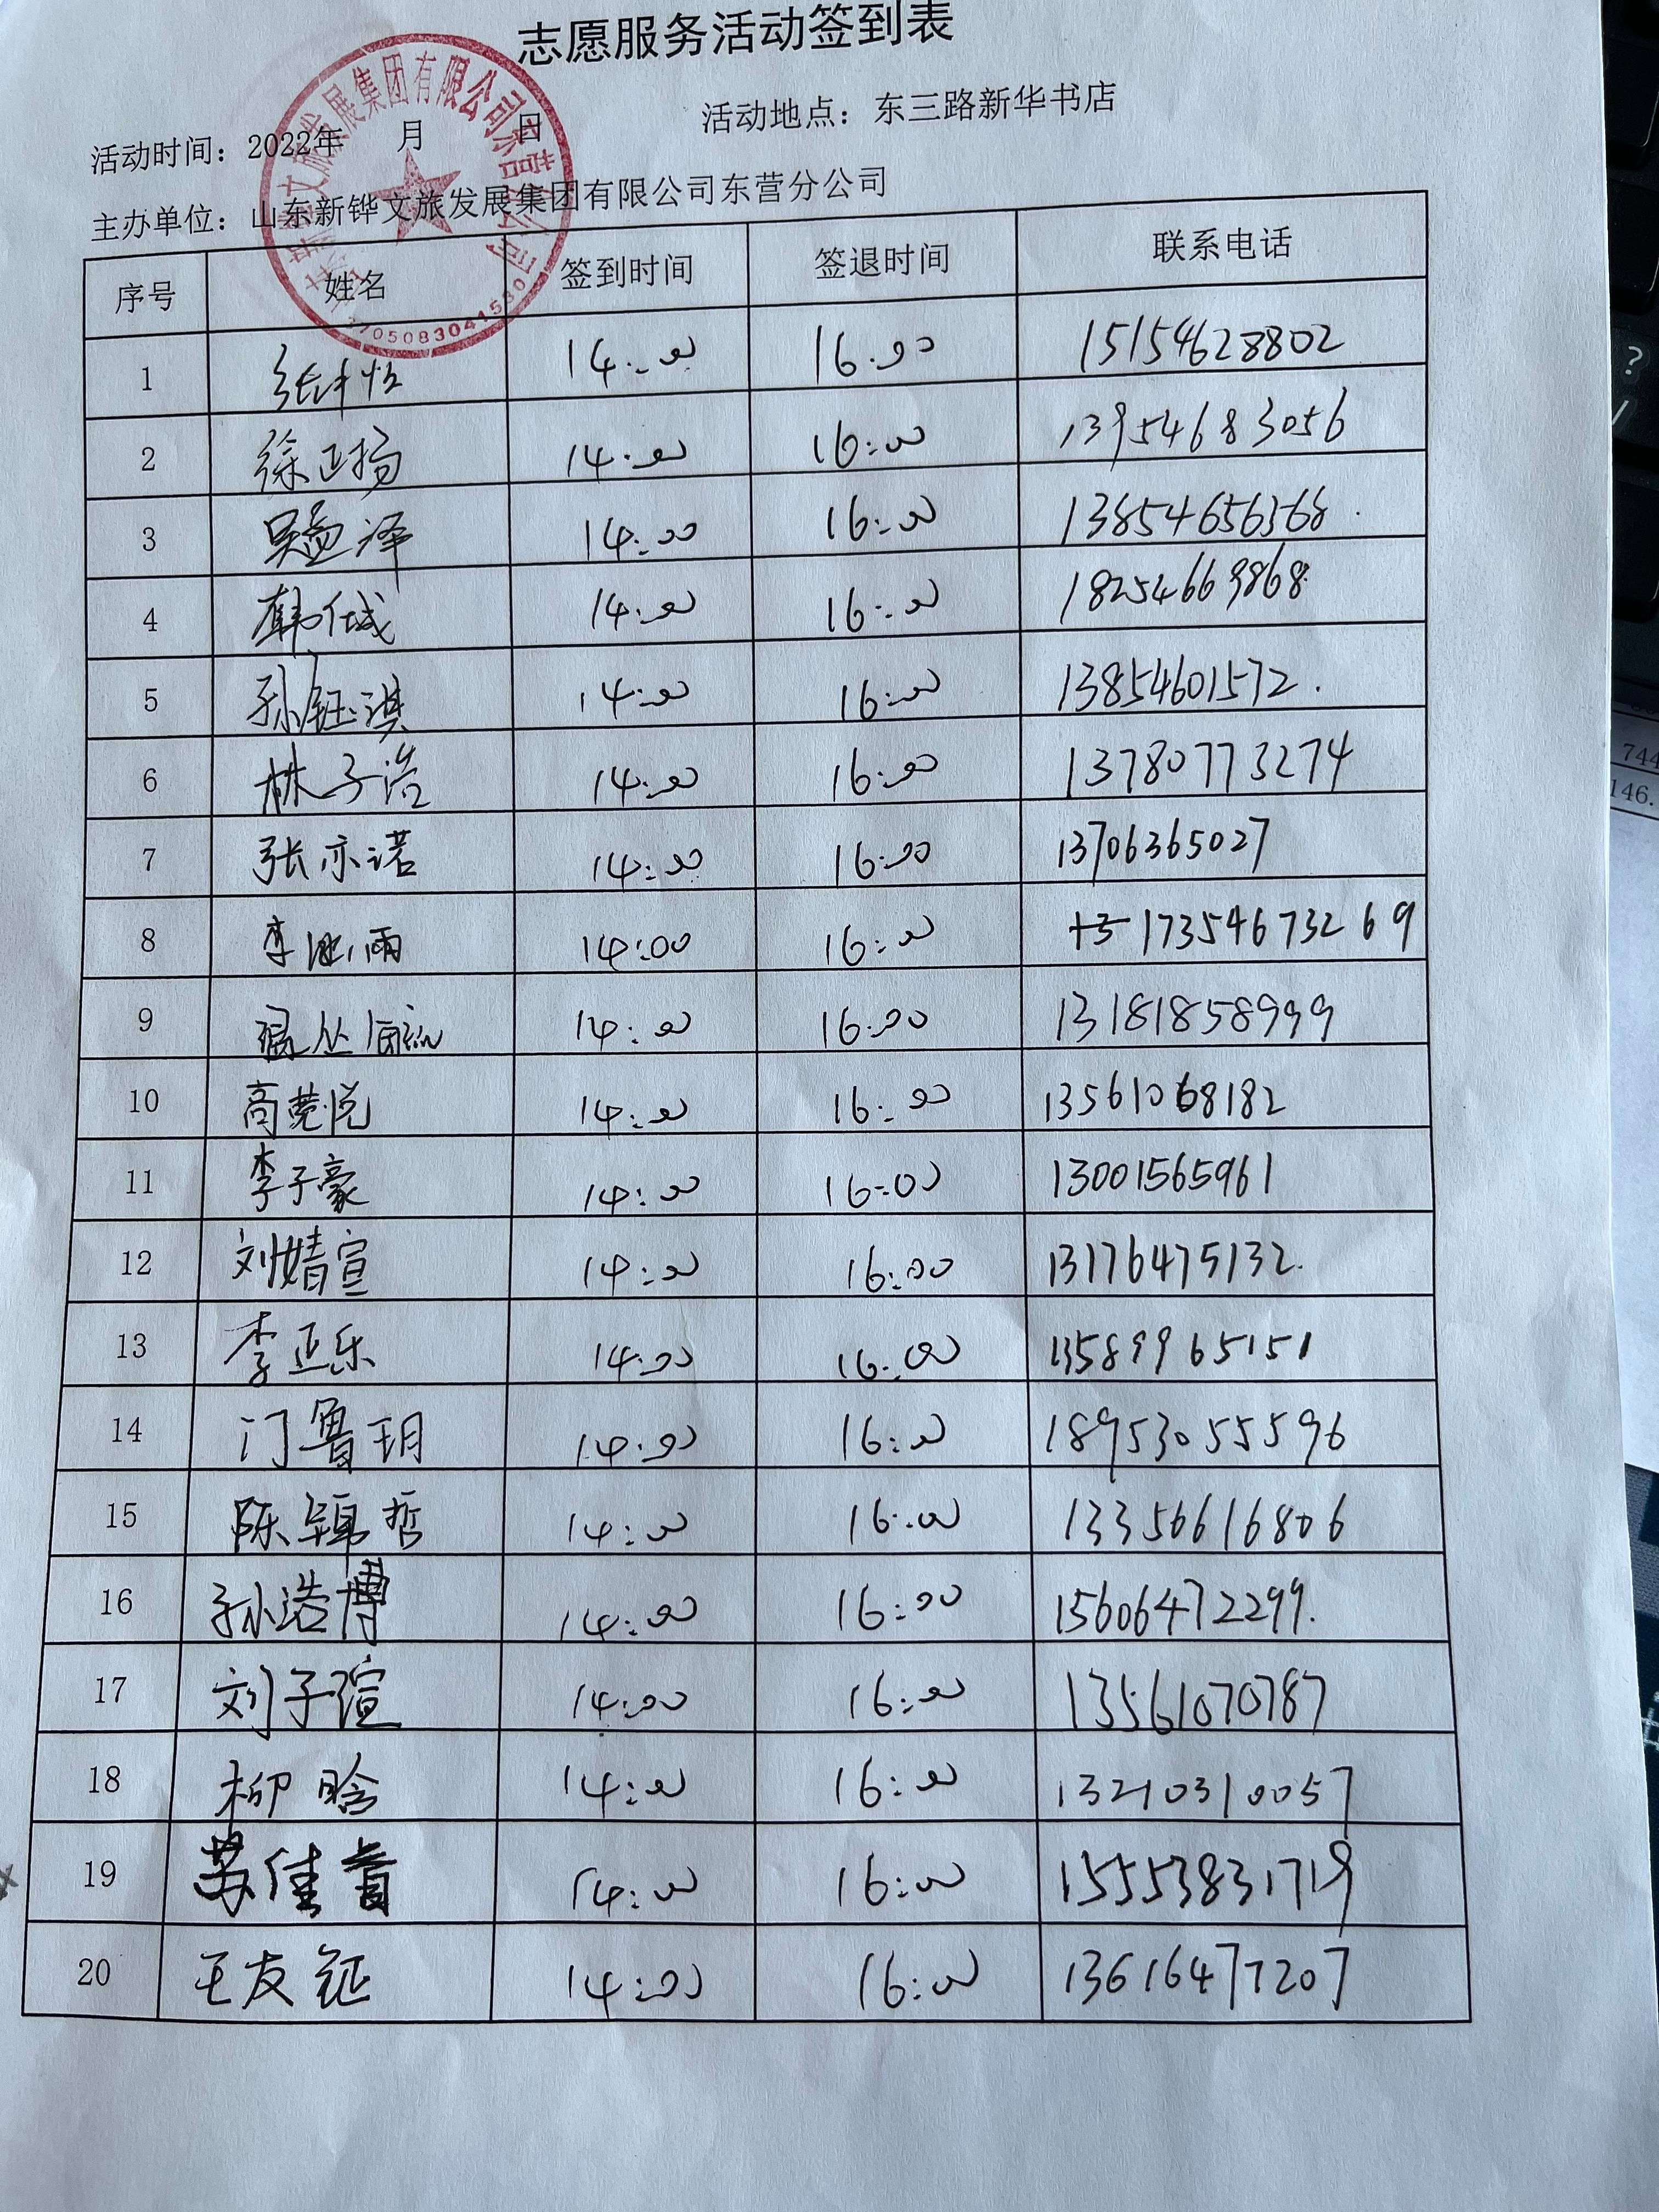 志愿服务活动签到表
活动时间：2022年 月 日 活动地点：东三路新华书店
主办单位：山东新铧文旅发展集团有限公司东营分公司
3705083041530
序号 姓名 签到时间 签退时间 联系电话
1 14:00 16:00 15154628802
2 徐正扬 14:00 16:00 13954683056
3 吴孟泽 14:00 16:00 13854656368
4 韩仕城 14:00 16:00 18254669868
5 孙钰淇 14:00 16:00 13854601572
6 林子浩 14:00 16:00 13780773274
7 张亦诺 14:00 16:00 13706365027
8 李 雨 14:00 16:00 17354673269
9 14:00 16:00 13181858999
10 高 悦 14:00 16:00 13561068182
11 李子豪 14:00 16:00 13001565961
12 刘婧宣 14:00 16:00 13176475132
13 李正乐 14:00 16:00 13589965151
14 门鲁玥 14:00 16:00 18953055596
15 陈 哲 14:00 16:00 13356616806
16 孙浩博 14:00 16:00 15606472299
17 刘子瑄 14:00 16:00 13561070787
18 柳晗 14:00 16:00 13210310057
19 苏佳 14:00 16:00 15553831719
20 王友钲 14:00 16:00 13616477207